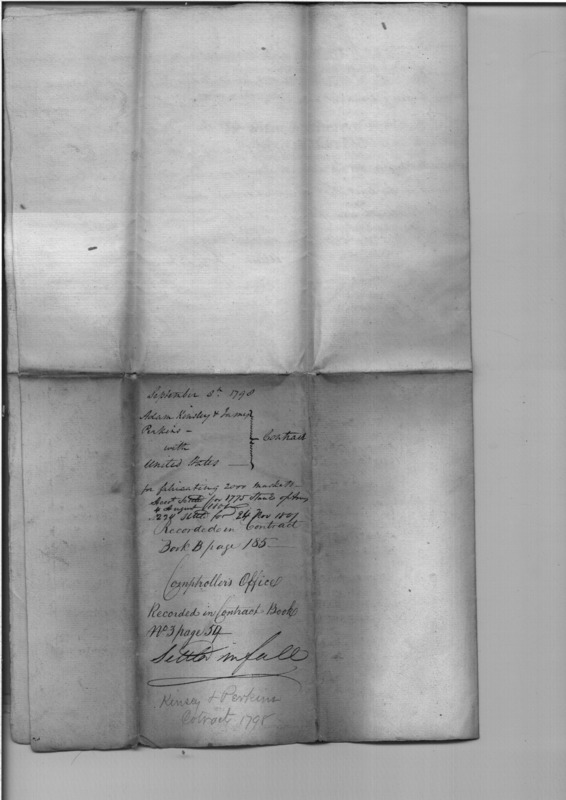 September 8th 1798
Adam Kinsley & James
Perkins -
with
United States
Contract
for fabricating 2000 muskets -
for 1775 Stands of Arms
4 August 1801
225 for 24 Nov 1801
Recorded in Contract
Book B page 185
Comptrollers Office
Recorded in Contract Book
No 3 page 54
Settled in full
Kinsey & Perkins
Cotract 1798